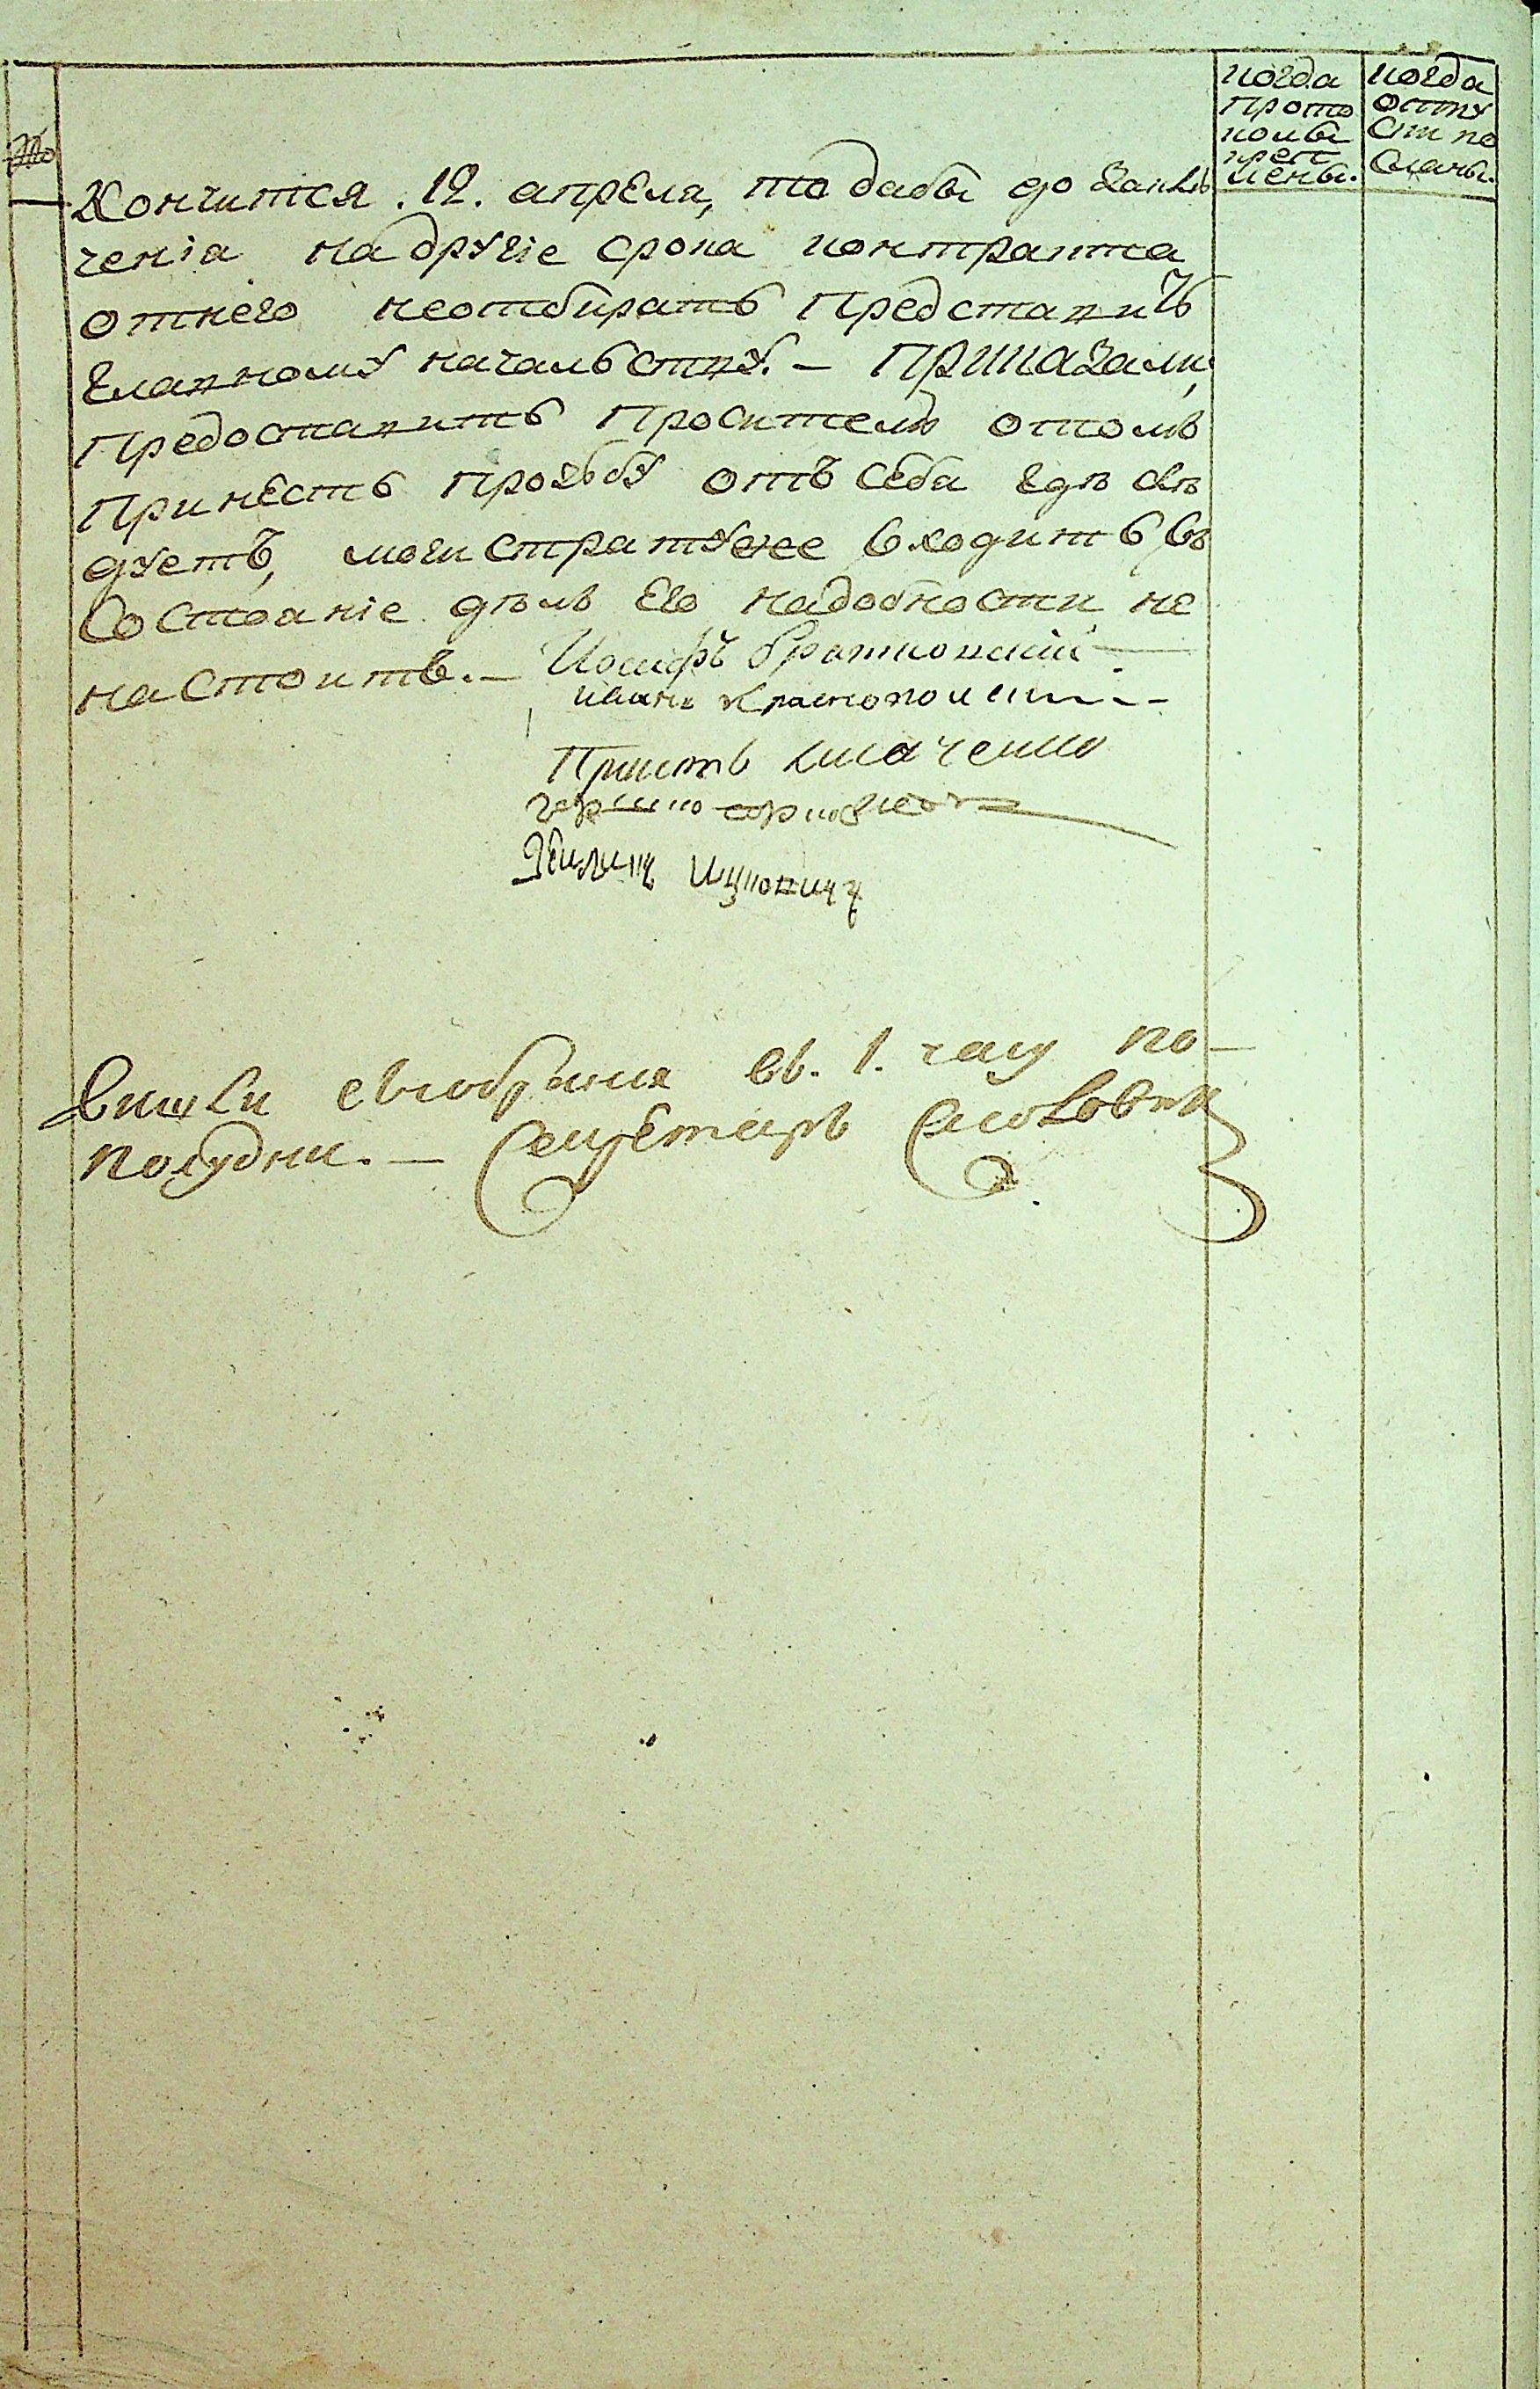 №
когда
прото
колы
преп
мены.
когда
отпу
сти по
сланы.
Кончится . 12. апреля, то дабы до заклю
ченія на другіе срока контракта
отнего неотбирать представить
главному начальству. – Приказали,
предоставить просителю отомъ
принесть прозьбу отъ себа гдѣ слѣ
дуетъ, магистратуже входить въ
состоаніе дѣлъ его надобности не
настоитъ. –
Іосифъ Братковскій
иванъ Краснопольски
Звулинъ Ицковичъ
Вишли сприсудствия въ. 1. часу по-
полудни. – Секретарь